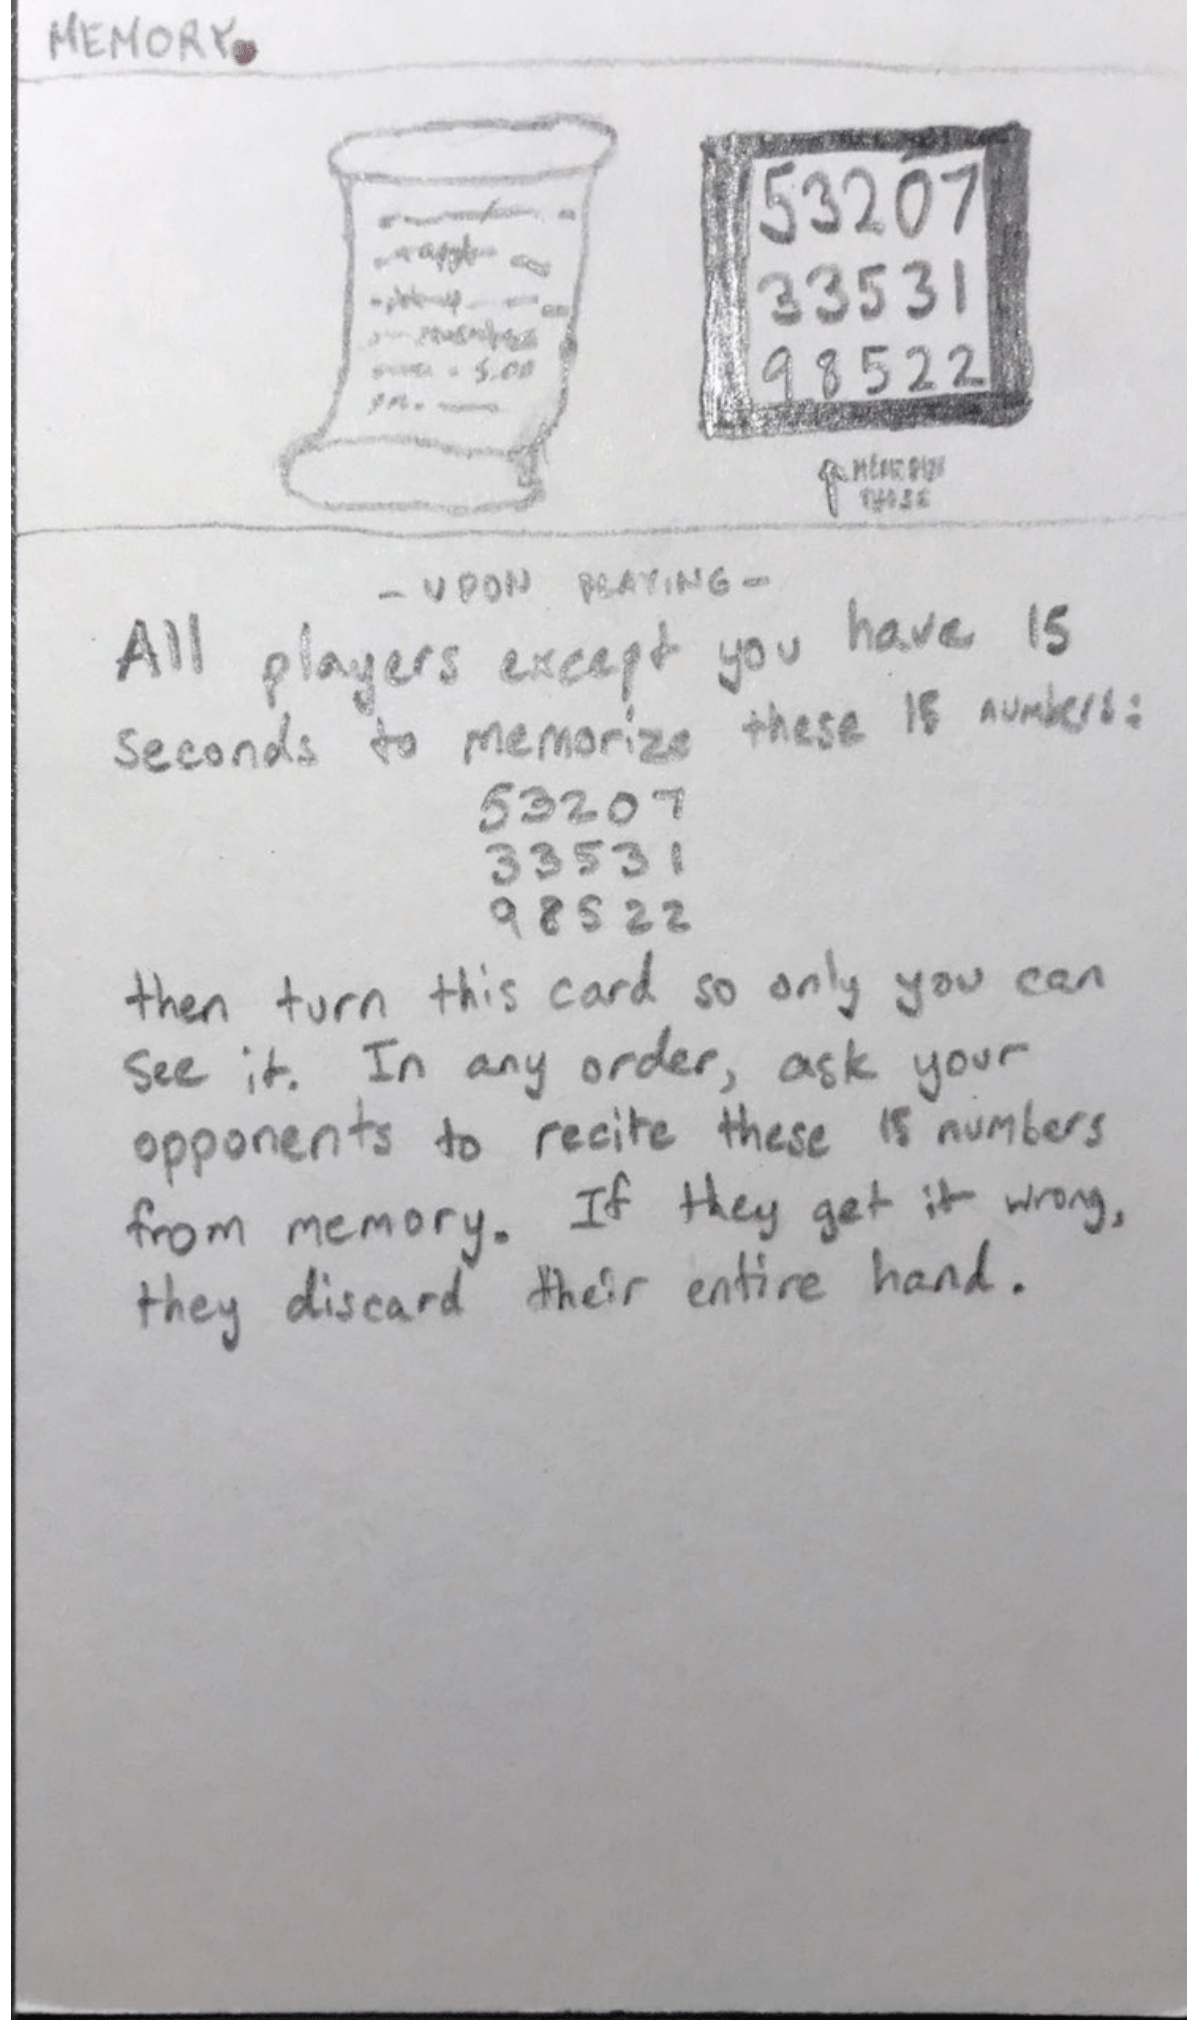 MEMORY.
5.00
53207
33531
98522
MEMORIZE
THESE
- UPON PLAYING -
All players except you have 15
seconds to memorize these 15 numbers:
53207
33531
98522
then turn this card so only you can
see it. In any order, ask your
opponents to recite these 15 numbers
from memory. If they get it wrong,
they discard their entire hand.